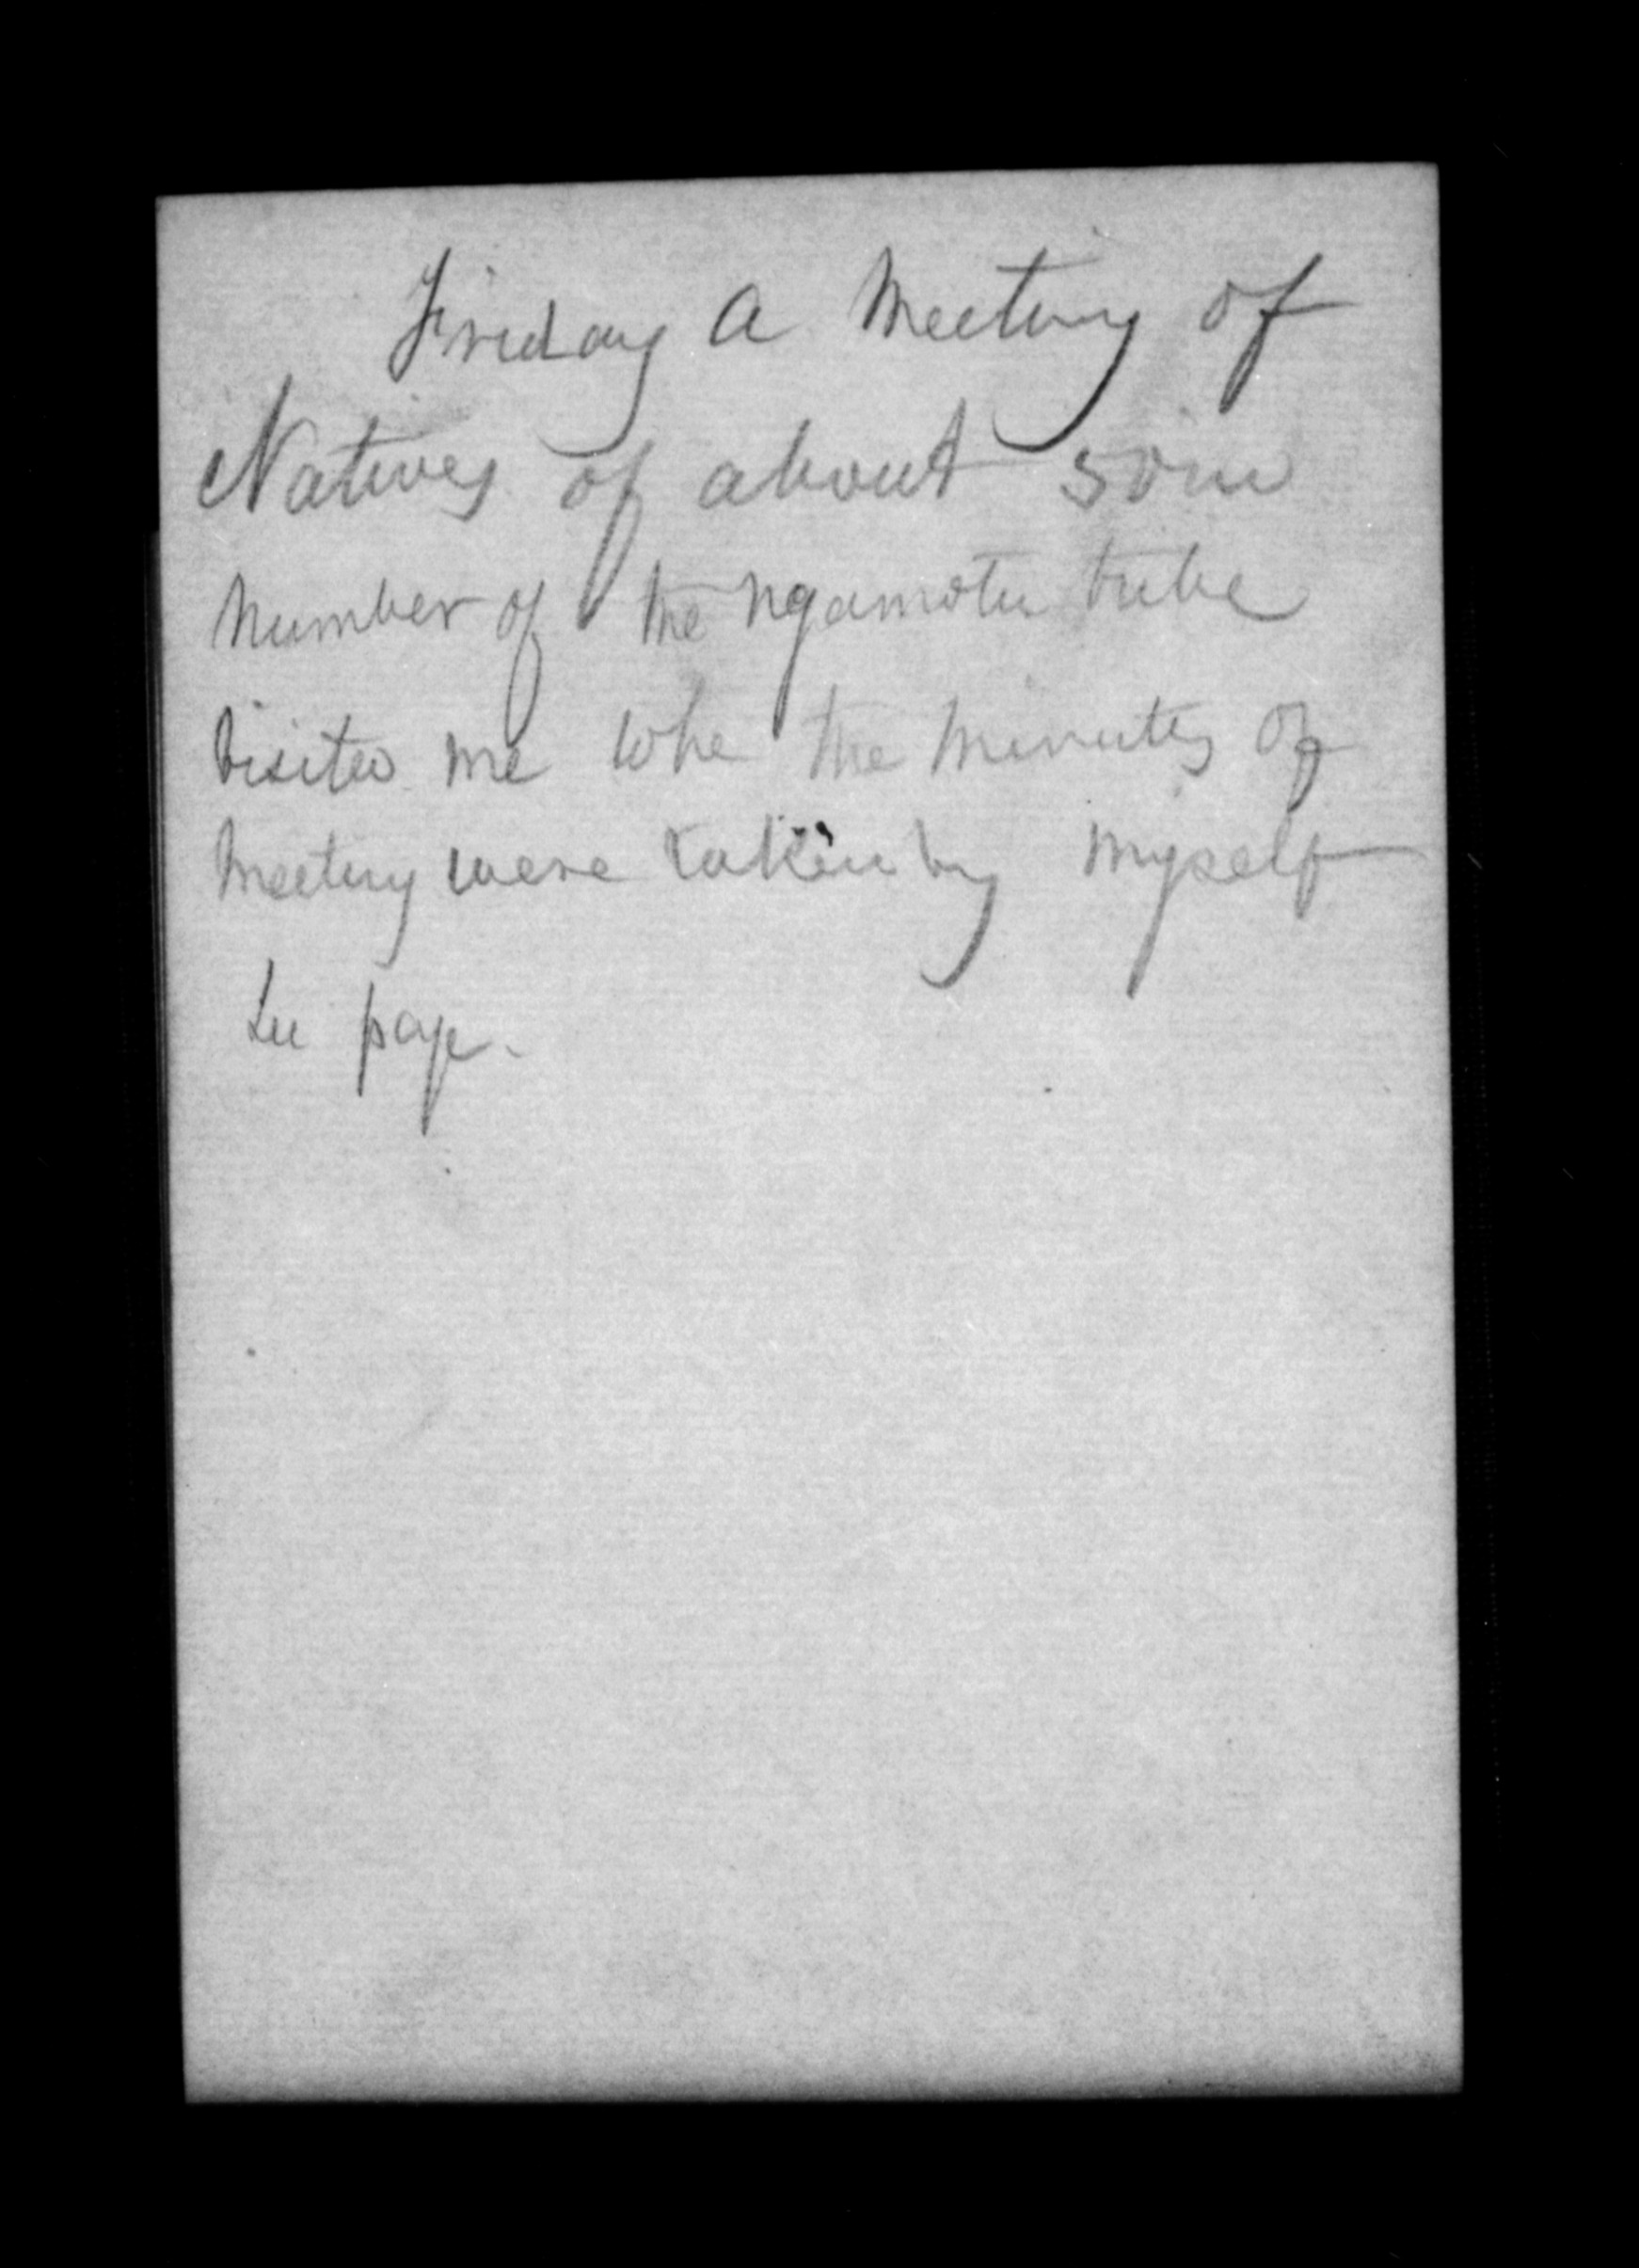 Friday A Meeting of
Natives of about 50 in
Number of the Ngamotu tribe
visited me whe the minutes of
Meeting were taken by myself
See page.